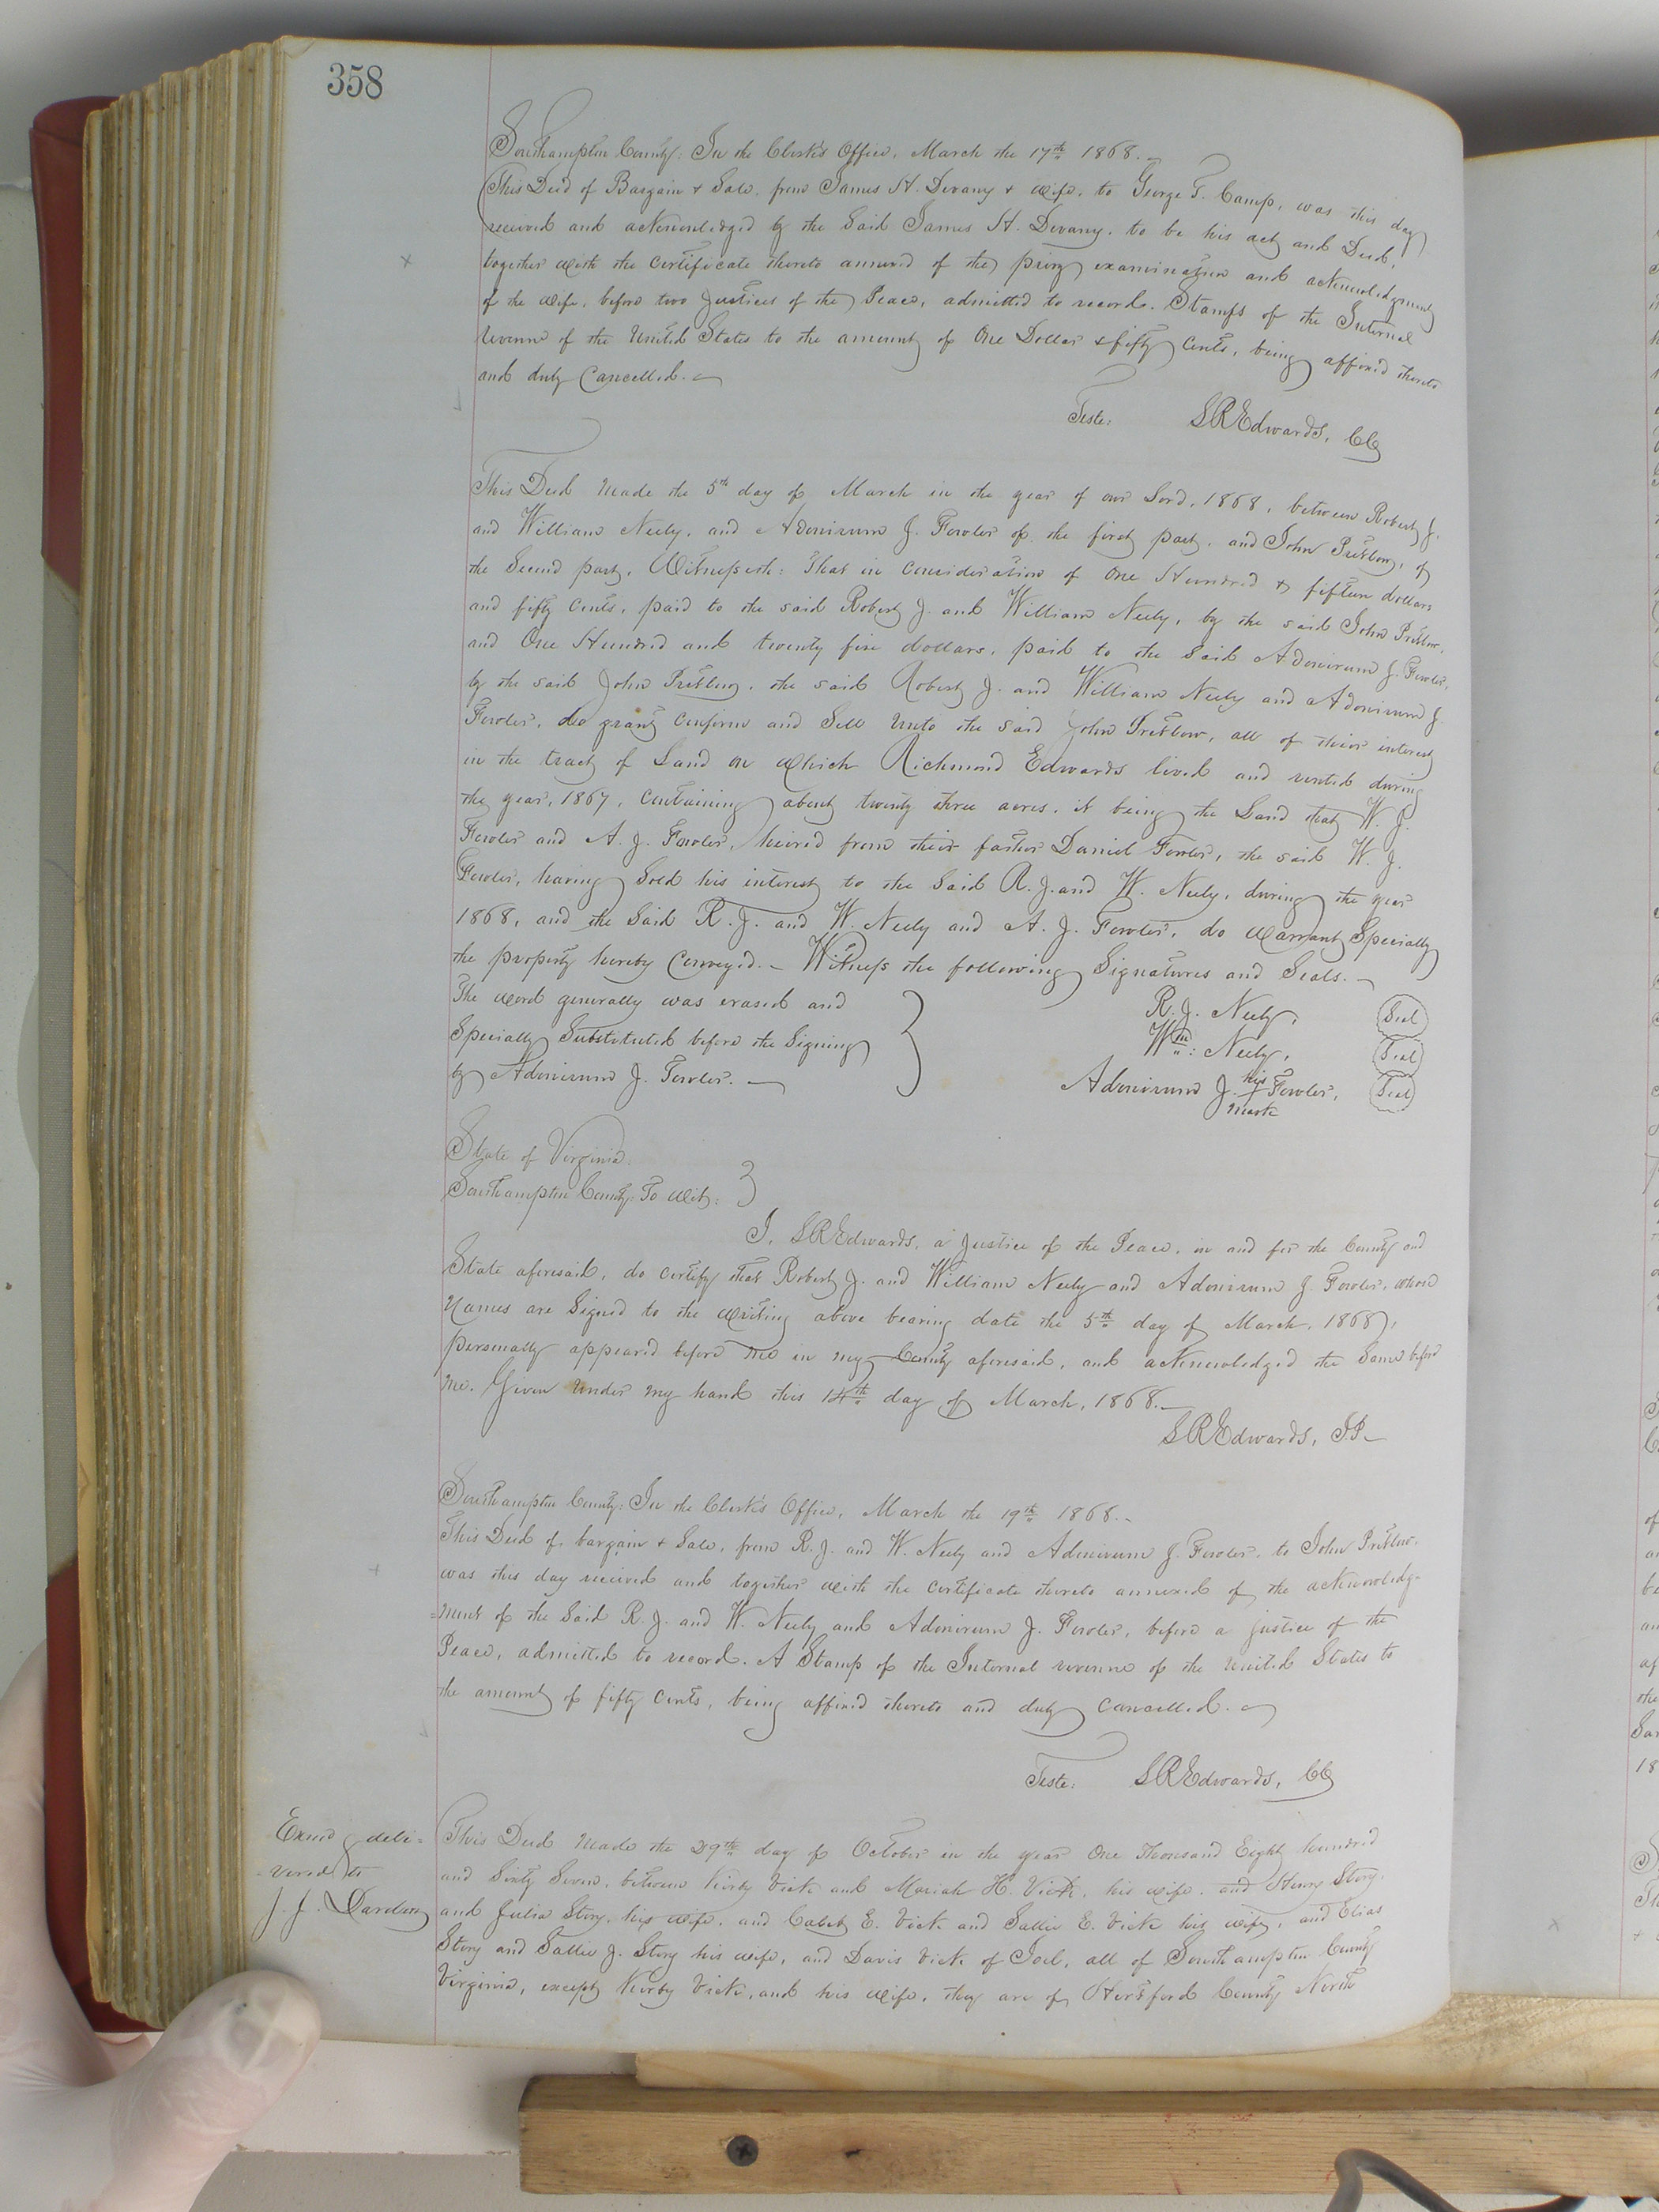 358
Southampton County: In the Clerk's Office, March the 17th 1868.
This Deed of Bargain & Sale, from James H. Devany & wife, to George T. Camp, was this day
received and acknowledged by the Said James H. Devany, to be his act and Deed,
together with the certificate thereto annexed of the privy examination and acknowledgment
of the wife, before two Justices of the Peace, admitted to record. Stamps of the Internal
revenue of the United States to the amount of One Dollar & fifty Cents, being affixed thereto
and duly Cancelled.
Teste: L R Edwards, CC
This Deed Made the 5th day of March in the year of our Lord, 1868, between Robert J.
and William Neely, and Adonirum J. Fowler of the first part, and John Pretlow, of
the Second part, Witnesseth: That in Consideration of One Hundred & fifteen dollars
and fifty Cents, paid to the said Robert J. and William Neely, by the said John Pretlow,
and One Hundred and twenty five dollars, paid to the Said Adonirum J. Fowler,
by the said John Pretlow, the said Robert J. and William Neely and Adonirum J.
Fowler, do grant Confirm and Sell Unto the said John Pretlow, all of their interest
in the tract of Land on which Richmond Edwards lived and rented during
the year, 1867, Containing about twenty three acres, it being the Land that W. J.
Fowler and A. J. Fowler, heired from their father Daniel Fowler, the said W. J.
Fowler, having Sold his interest to the Said R. J. and W. Neely, during the year
1868, and the Said R. J. and W. Neely and A. J. Fowler, do warrant Specially
the property hereby Conveyed. – Witness the following Signatures and Seals. –
The word generally was erased and
Specially Substituted before the Signing
by Adonirum J. Fowler. –
R. J. Neely, Seal
Wm: Neely, Seal
Adonirum J. his Fowler, Seal
mark
State of Virginia
Southampton County To wit:
I, L R Edwards, a Justice of the Peace, in and for the County and
State aforesaid, do certify that Robert J. and William Neely and Adonirum J. Fowler, whose
Names are Signed to the writing above bearing date the 5th day of March, 1868,
personally appeared before me in my County aforesaid, and acknowledged the Same before
me. Given under my hand this 14th day of March, 1868. –
L R Edwards, J.P. –
Southampton County: In the Clerk's Office, March the 19th 1868. –
This Deed of bargain & Sale, from R. J. and W. Neely and Adonirum J. Fowler, to John Pretlow,
was this day received and together with the certificate thereto annexed of the acknowledg-
=ment of the Said R. J. and W. Neely and Adonirum J. Fowler, before a justice of the
Peace, admitted to record. A Stamp of the Internal revenue of the United States to
the amount of fifty Cents, being affixed thereto and duly Cancelled.
Teste: L R Edwards, CC
Exmd & deli=
=vered to
J. J. Darden
This Deed Made the 29th day of October in the year One Thousand Eight hundred
and Sixty Seven, between Kirby Vick and Mariah H. Vick, his wife, and Henry Story,
and Julia Story, his wife, and Caleb E. Vick and Sallie E. Vick his wife, and Elias
Story and Sallie J. Story his wife, and Davis Vick of Joel, all of Southampton County
Virginia, except Kirby Vick, and his wife, they are of Hertford County North